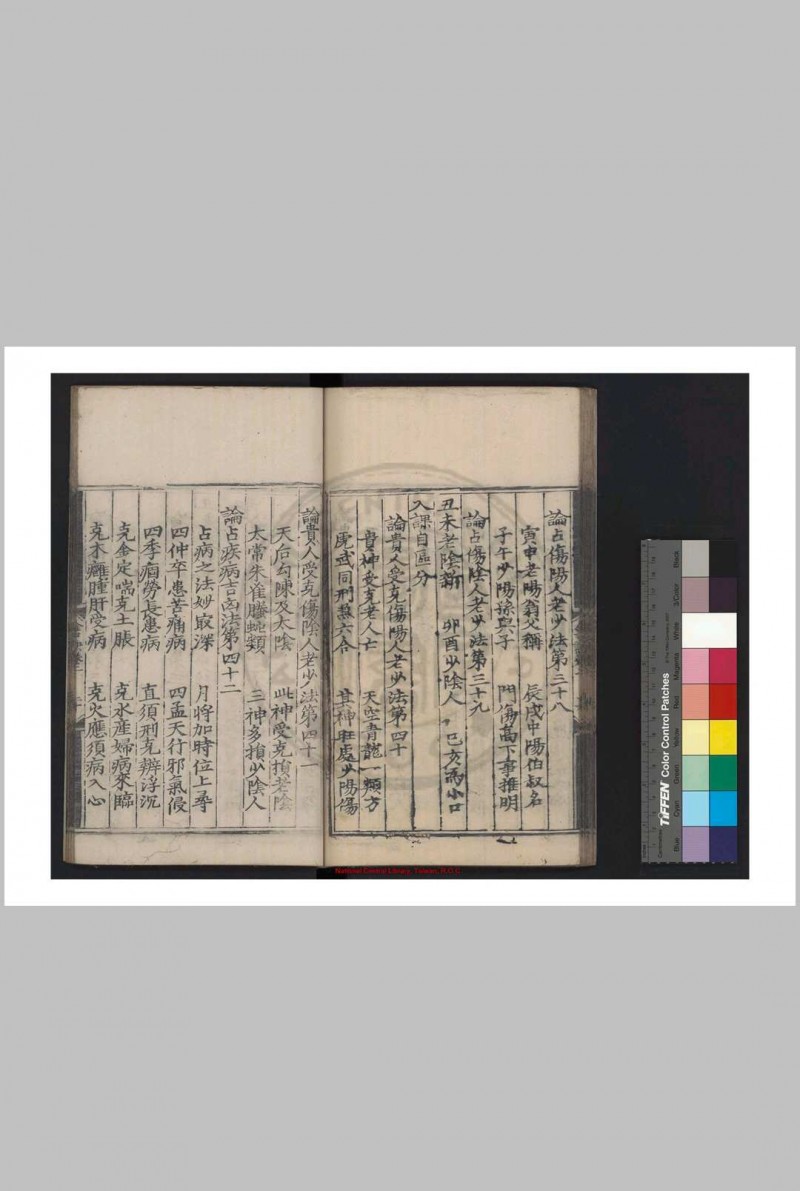 論占傷陽人老少法第三十八
寅申老陽翁父稱　辰戌中陽伯叔名
子午少陽孫與子　門傷高下事推明
論占傷陰人老少法第三十九
丑未老陰稱　卯酉少陰人　巳亥為小口
入課自區分
論貴人受克傷陽人老少法第四十
貴神受克老人亡　天空青龍一類方
虎武同刑煞六合　其神旺處少陽傷
論貴人受克傷陰人老少法第四十一
天后勾陳及太陰　此神受克損老陰
太常朱雀騰蛇類　三神多損少陰人
論占疾病吉凶法第四十二
占病之法妙最深　月將加時位上尋
四仲卒患苦痛病　四孟天行邪氣侵
四季痼勞長患病　直須刑克辨浮沉
克金定喘克土脹　克水產婦病來臨
克木癰腫肝受病　克火應須病入心
National Central Library, Taiwan, R.O.C.
TIFFEN Color Control Patches
Blue
Cyan
Green
Yellow
Red
Magenta
White
3/Color
Black